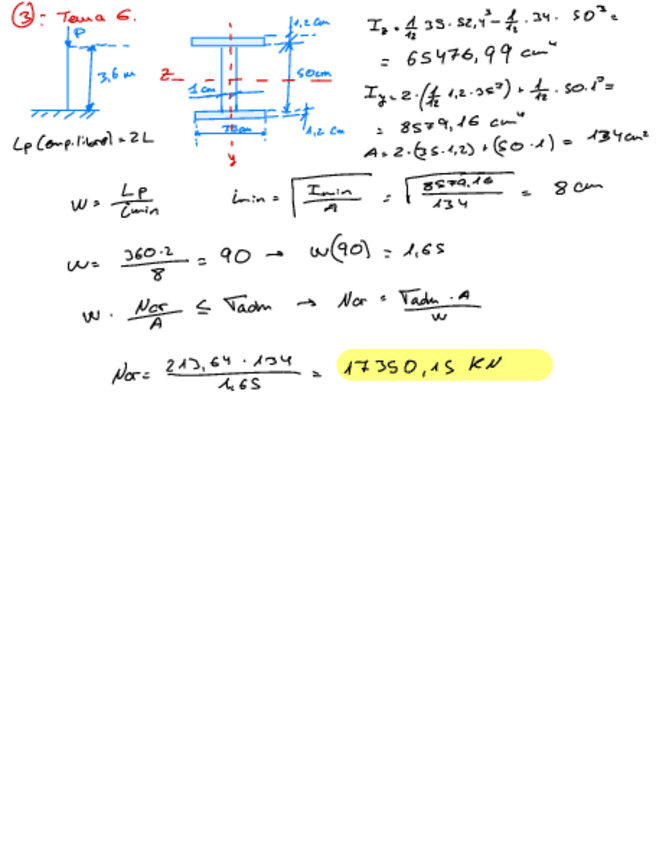 ③: Tema 6.
P
3,6 m
Lp (emp. libre) = 2L
1,2 cm
Z
50 cm
1 cm
1,2 cm
y
I_z = 1/12 35 · 52,4³ − 1/12 · 34 · 50³ =
= 65476,99 cm⁴
I_y = 2 · (1/12 1,2 · 35³) + 1/12 · 50 · 1³ =
= 8579,16 cm⁴
A = 2 · (35 · 1,2) + (50 · 1) = 134 cm²
w = Lp / imin
imin = √(Imin / A) = √(8579,16 / 134) = 8 cm
w = 360·2 / 8 = 90 → w(90) = 1,65
w · Ncr / A ≤ σadm → Ncr = σadm · A / w
Ncr = 213,64 · 134 / 1,65 = 17350,15 KN